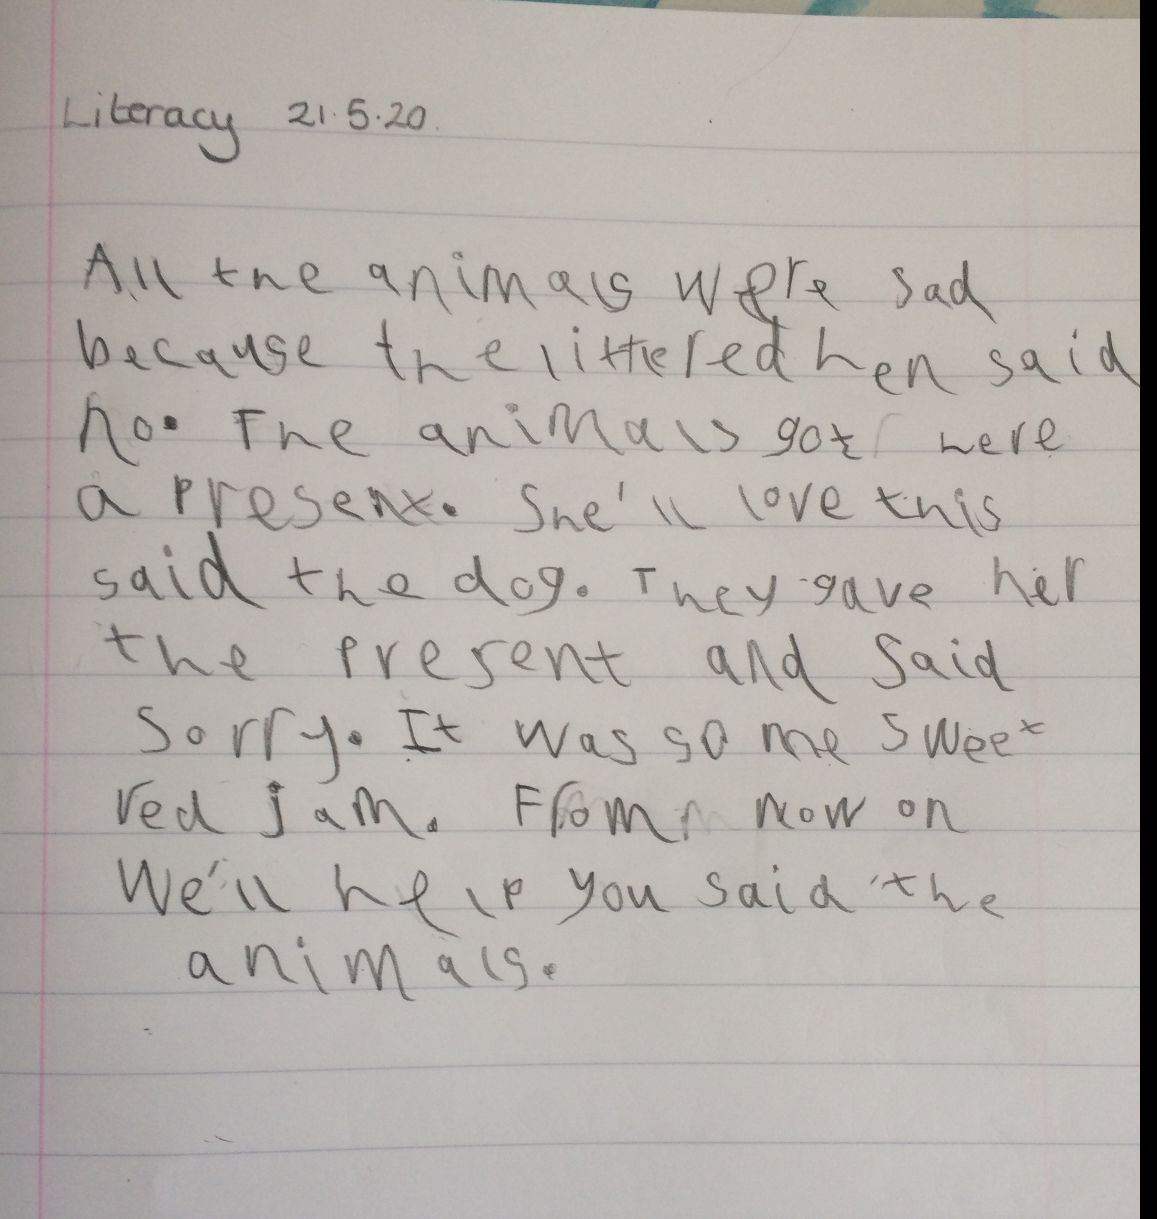 Literacy 21.5.20.
All the animals were sad
because the little red hen said
no. The animals got here
a present. She'll love this
said the dog. They gave her
the present and said
sorry. It was some sweet
red jam. From now on
We'll help you said the
animals.